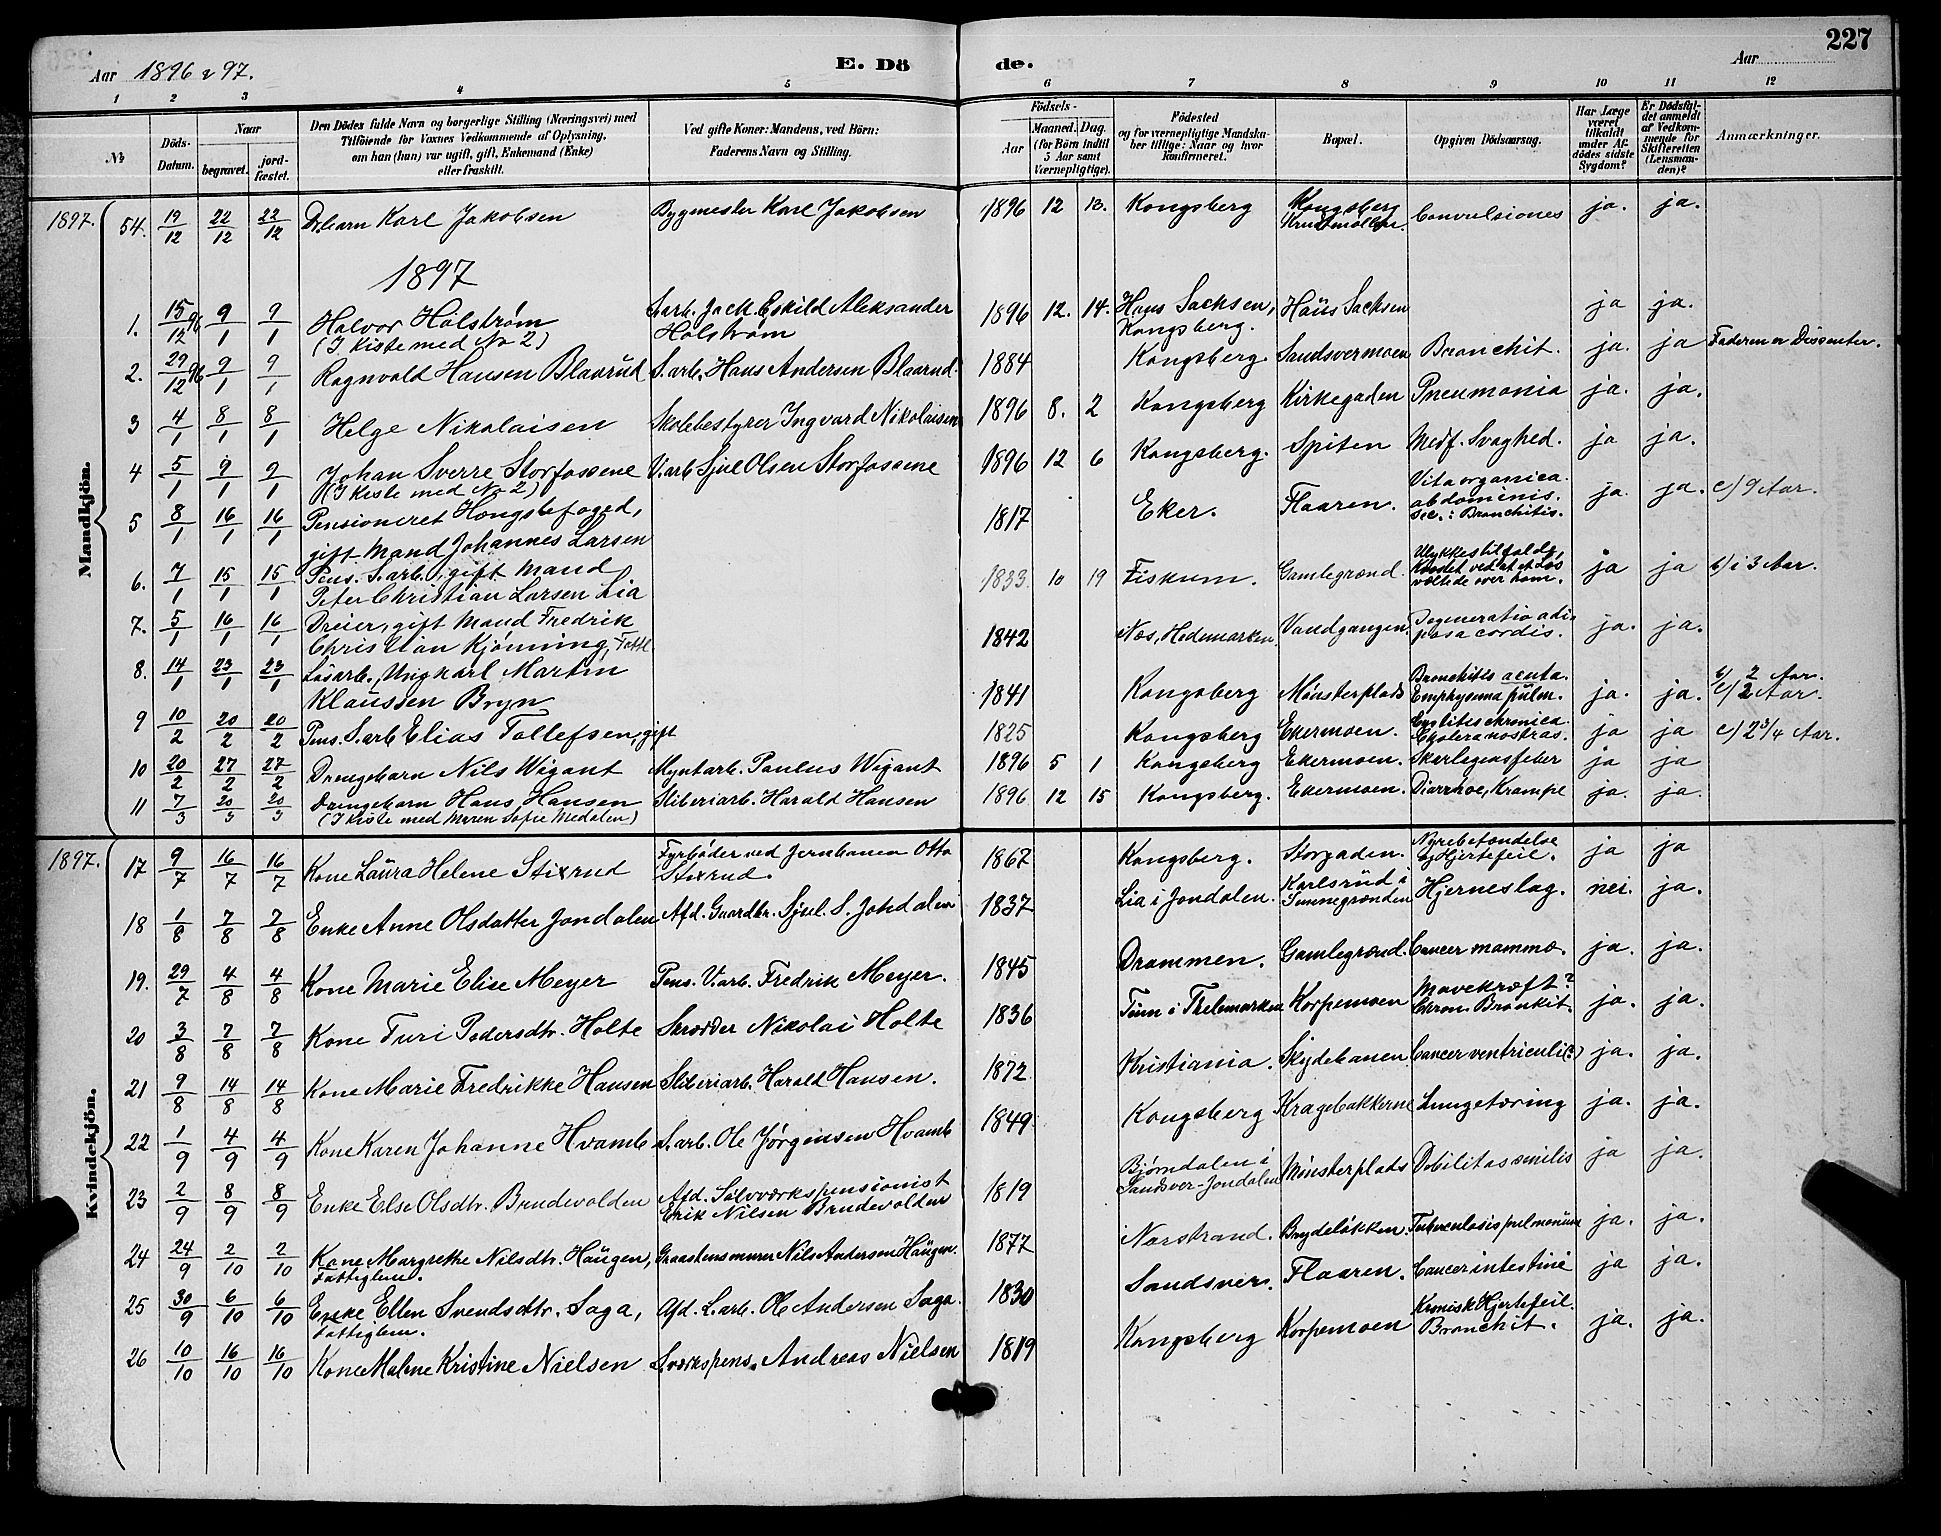 Aar 1896 & 97. E. Dö de. Aar 227
1 2 3 4 5 6 7 8 9 10 11 12
No Döds-Datum. Naar begravet. jordfæstet. Den Dödes fulde Navn og borgerlige Stilling (Næringsvei) med Tilföiende for Voxnes Vedkommende af Oplysning, om han (hun) var ugift, gift, Enkemand (Enke) eller fraskilt. Ved gifte Koner: Mandens, ved Börn: Faderens Navn og Stilling. Födsels- Aar Maaned. Dag. (for Börn indtil 5 Aar samt Værnepligtige). Födested og for værnepligtige Mandskaber tillige: Naar og hvor konfirmeret. Bopæl. Opgiven Dödsaarsag. Har Læge været tilkaldt under Afdödes sidste Sygdom? Er Dödsfaldet anmeldt af Vedkommende for Skifteretten (Lensmanden)? Anmærkninger.
Mandkjön.
1897. 54. 19/12 22/12 22/12 Drbarn Karl Jakobsen Bygmester Karl Jakobsen 1896 12 13. Kongsberg Kongsberg Krudtmøllen. Convulsiones ja. ja.
1897
1. 15/12 96 9/1 9/1 Halvor Holstrøm (I Kiste med No 2) Sarb. Jack. Eskild Aleksander Holstrøm 1896 12. 14. Hans Sachsen, Kongsberg. Haüs Sachsen ja ja.
2. 29/12 96 9/1 9/1 Ragnvald Hansen Blaarud S.arb. Hans Andersen Blaarud. 1884 Kongsberg Sandsvermoen Bronchit. ja. ja Faderen er Dissenter.
3 4/1 8/1 8/1 Helge Nikolaisen Skolebestyrer Ingvard Nikolaisen 1896 8. 2 Kongsberg Kirkegaden Pneumonia ja. ja.
4 5/1 9/1 9/1 Johan Sverre Storfossene (I Kiste med No 2) V.arb Sjul Olsen Storfossene 1896 12 6 Kongsberg. Spiten Medf. Svaghed. ja ja.
5 8/1 16/1 16/1 Pensioneret Hongstefoged, gift Mand Johannes Larsen 1817 Eker. Flaaren. Vita organica abdominis. Sec.: Bronchitis. ja. ja. c) 9 Aar.
6. 7/1 15/1 15/1 Pens. S.arb., gift Mand Peter Christian Larsen Lia 1833. 10 19 Fiskum. Gamlegrænd. Ulykkestilfælde, ved at et Læs væltede over ham. ja ja b) i 3 Aar.
7. 5/1 16/1 16/1 Dreier, gift Mand Fredrik Christian Kjønning, Fattl. 1842 Næs, Hedemarken Vandgangen. Degeneratio adiposa cordis. ja. ja.
8. 14/1 23/1 23/1 Løsarb., Ungkarl Martin Klaussen Bryn 1841 Kongsberg Münsterplads Bronchitis acuta. Emphysema pulm. ja. ja. b) 2 Aar. c) 2 Aar.
9 10/2 20/2 20/2 Pens. S.arb Elias Tollefsen, gift 1825 Kongsberg Ekermoen. Cystitis chronica. Cholera nostras. ja ja c) 2 3/4 Aar.
10 20/2 27/2 27/2 Drengebarn Nils Wigant Myntarb. Paulus Wigant 1896 5 1 Kongsberg Ekermoen. Skarlagensfeber ja ja
11 7/3 20/3 20/3 Drengebarn Hans Hansen (I Kiste med Maren Sofie Medalen) Sliberiarb. Harald Hansen 1896 12 15 Kongsberg. Ekermoen. Diarrhoe, Krampe ja. ja.
Kvindekjön.
1897. 17 9/7 16/7 16/7 Kone Laüra Helene Stixrud Fyrbøder ved Jernbanen Otto Stixrud. 1867 Kongsberg. Storgaden. Nyrebetændelse og Hjertefeil. ja ja
18 1/8 7/8 7/8 Enke Anne Olsdatter Jondalen Afd. Gaardbr. Sjul. S. Jondalen 1837 Lia i Jondalen. Karlsrüd i Tennegrænden Hjerneslag. nei. ja.
19. 29/7 4/8 4/8 Kone Marie Elise Meyer Pens. V.arb. Fredrik Meyer. 1845 Drammen. Gamlegrænd. Cancer mammæ. ja. ja.
20 3/8 7/8 7/8 Kone Turi Pedersdtr. Holte Skrædder Nikolai Holte 1836 Tinn i Thelemarken Korpemoen Mavekræft? Chron. Bronkit. ja. ja.
21 9/8 14/8 14/8 Kone Marie Fredrikke Hansen Sliberiarb. Harald Hansen. 1872 Kristiania. Skydebanen. Cancer ventriculi(?) ja. ja.
22 1/9 4/9 4/9 Kone Karen Johanne Hvamb S.arb. Ole Jørgensen Hvamb 1849 Kongsberg Kragebakkerne Lungetæring ja. ja.
23 2/9 8/9 8/9 Enke Else Olsdtr. Brudevolden Afd. Sølvværkspensionist Erik Nilsen Brudevolden 1819 Bjørndalen i Sandsver-Jondalen Münsterplads Debilitas senilis ja ja.
24 24/9 2/10 2/10 Kone Margrethe Nilsdtr. Haügen, Fattiglem. Graastensmurer Nils Andersen Haügen. 1877 Norstrand. Brydeløkken. Tuberculosis pulmonum ja. ja.
25 30/9 6/10 6/10 Enke Ellen Svendsdtr. Saga, Fattiglem. Afd. L.arb. Ole Andersen Saga. 1830 Sandsver. Flaaren. Cancer intestini ja ja.
26 10/10 16/10 16/10 Kone Malene Kristine Nielsen S.værkspens. Andreas Nielsen 1819 Kongsberg Korpemoen Kronisk Hjertefeil. Bronchit. ja. ja.